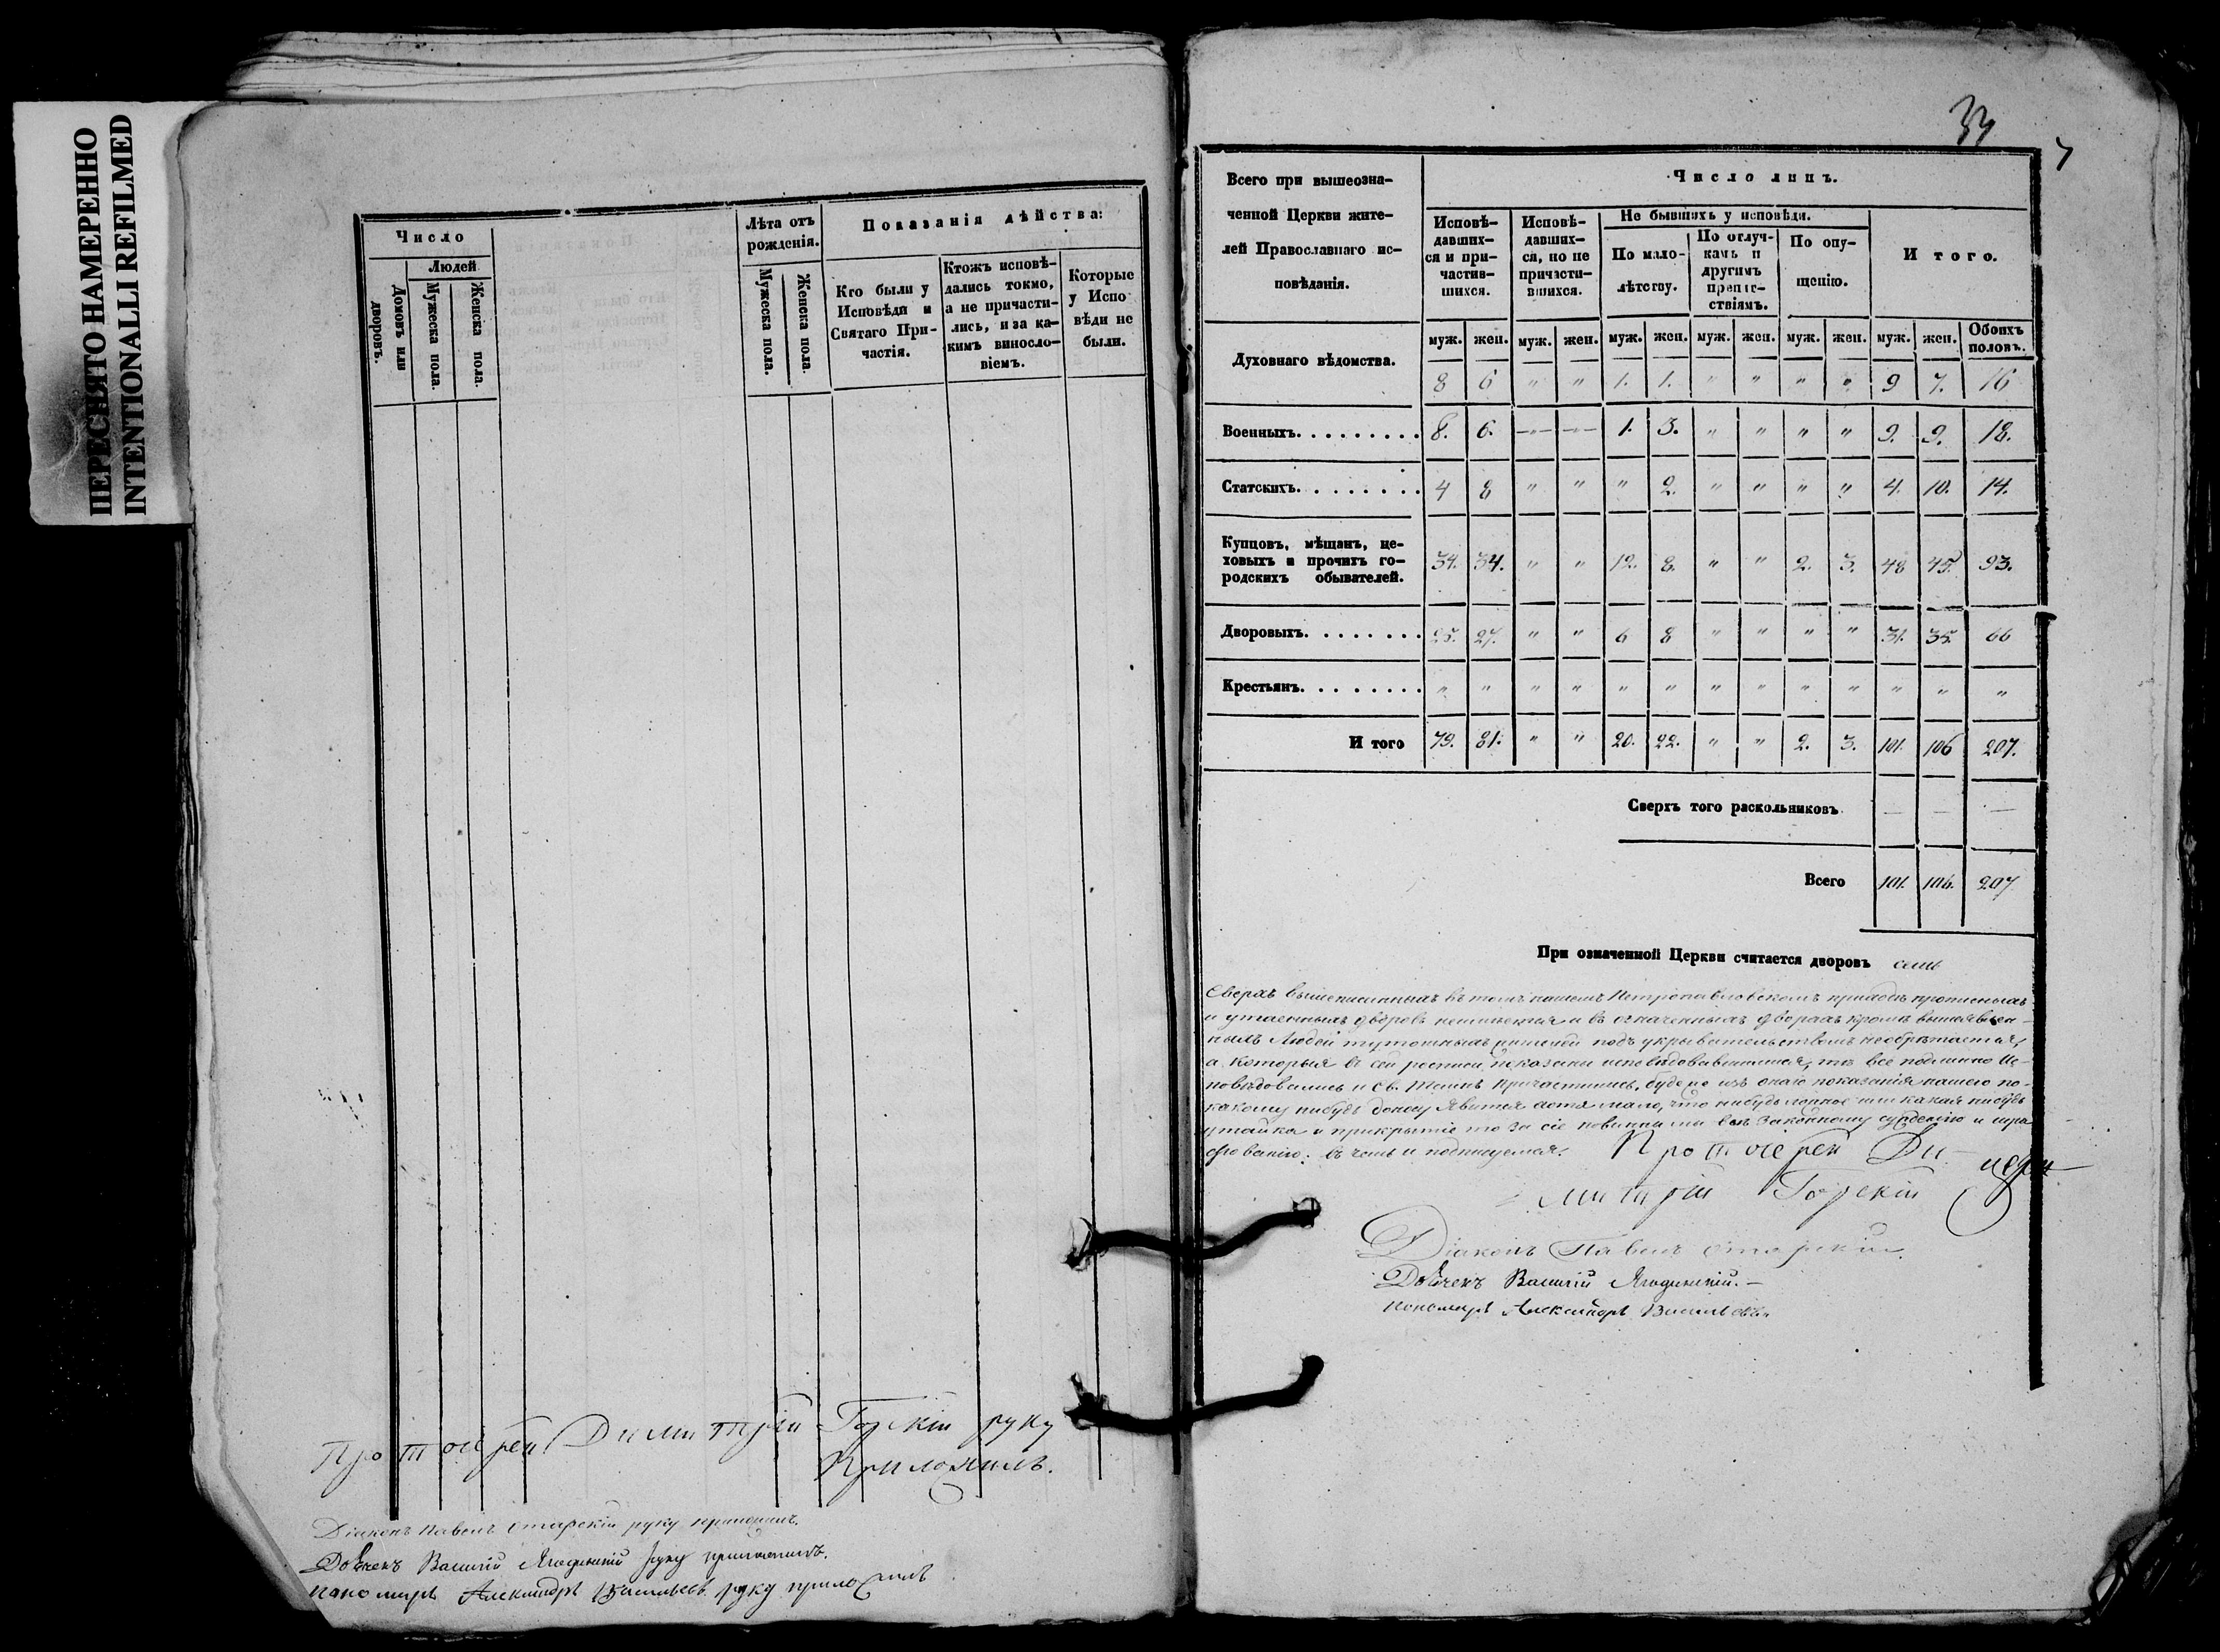 ПЕРЕСНЯТО НАМЕРЕННО
INTENTIONALLI REFILMED
Число
Людей
Домовъ или дворовъ.
Мужеска пола.
Женска пола.
Лѣта отъ
рожденія.
Мужеска пола.
Женска пола.
Показанія дѣйства:
Кто были у
Исповѣди и
Святаго При-
частія.
Ктожъ исповѣ-
дались токмо,
а не причасти-
лись, и за ка-
кимъ виносло-
віемъ.
Которые
у Испо
вѣди не
были.
Протоіерей Димитрій Горскій руку
Приложилъ.
Діаконъ Павелъ руку приложилъ.
Василій руку приложилъ.
пономарь Александръ Васильевъ руку приложилъ
Всего при вышеозна-
ченной Церкви жите-
лей Православнаго ис-
повѣданія.
Число лицъ.
Исповѣ-
давших-
ся и при-
частив-
шихся.
Исповѣ-
давших-
ся, но не
причасти-
вшихся.
Не бывшихъ у исповѣди.
По мало-
лѣтству.
По отлуч-
камъ и
другимъ
препят-
ствіямъ.
По опу-
щенію.
И того.
муж. жен. муж. жен. муж. жен. муж. жен. муж. жен. муж. жен. Обоихъ половъ.
Духовнаго вѣдомства. 8 6 " " 1. 1. " " " " 9 7. 16
Военныхъ. 8. 6. — — 1. 3. " " " " 9. 9. 18.
Статскихъ. 4 8 " " " 2. " " " " 4. 10. 14.
Купцовъ, мѣщанъ, це-
ховыхъ и прочихъ го-
родскихъ обывателей. 34. 34. " " 12. 8. " " 2. 3. 48 45. 93.
Дворовыхъ. 25. 27. " " 6 8 " " " " 31. 35. 66
Крестьянъ. " " " " " " " " " " " " "
И того 79. 81. " " 20. 22. " " 2. 3. 101. 106 207.
Сверхъ того раскольниковъ — — —
Всего 101. 106. 207
При означенной Церкви считается дворовъ семь
Сверхъ вышеписанныхъ въ томъ нашемъ Петропавловскомъ приходѣ прописныхъ
и утаенныхъ дворовъ неимеется и въ означенныхъ дворахъ кромѣ вышеявлен-
ныхъ Людей тутошныхъ жителей подъ укрывательствомъ необрѣтается,
а которыя въ сей росписи показаны исповѣдовавшимися, тѣ всѣ подлинно Ис-
повѣдовались и Св. Таинъ причастились. буде же изъ онаго показанія нашего по-
какому нибудь доносу явится хотя мало, что нибудь ложное или какая нибудь
утайка и прикрытіе то за сіе повинны мы законному сужденію и штра
фованію: въ чемъ и подписуемся. Протоіерей Ди-
митрій Горскій
Діаконъ Павелъ
Василій
пономарь Александръ Васильевъ.